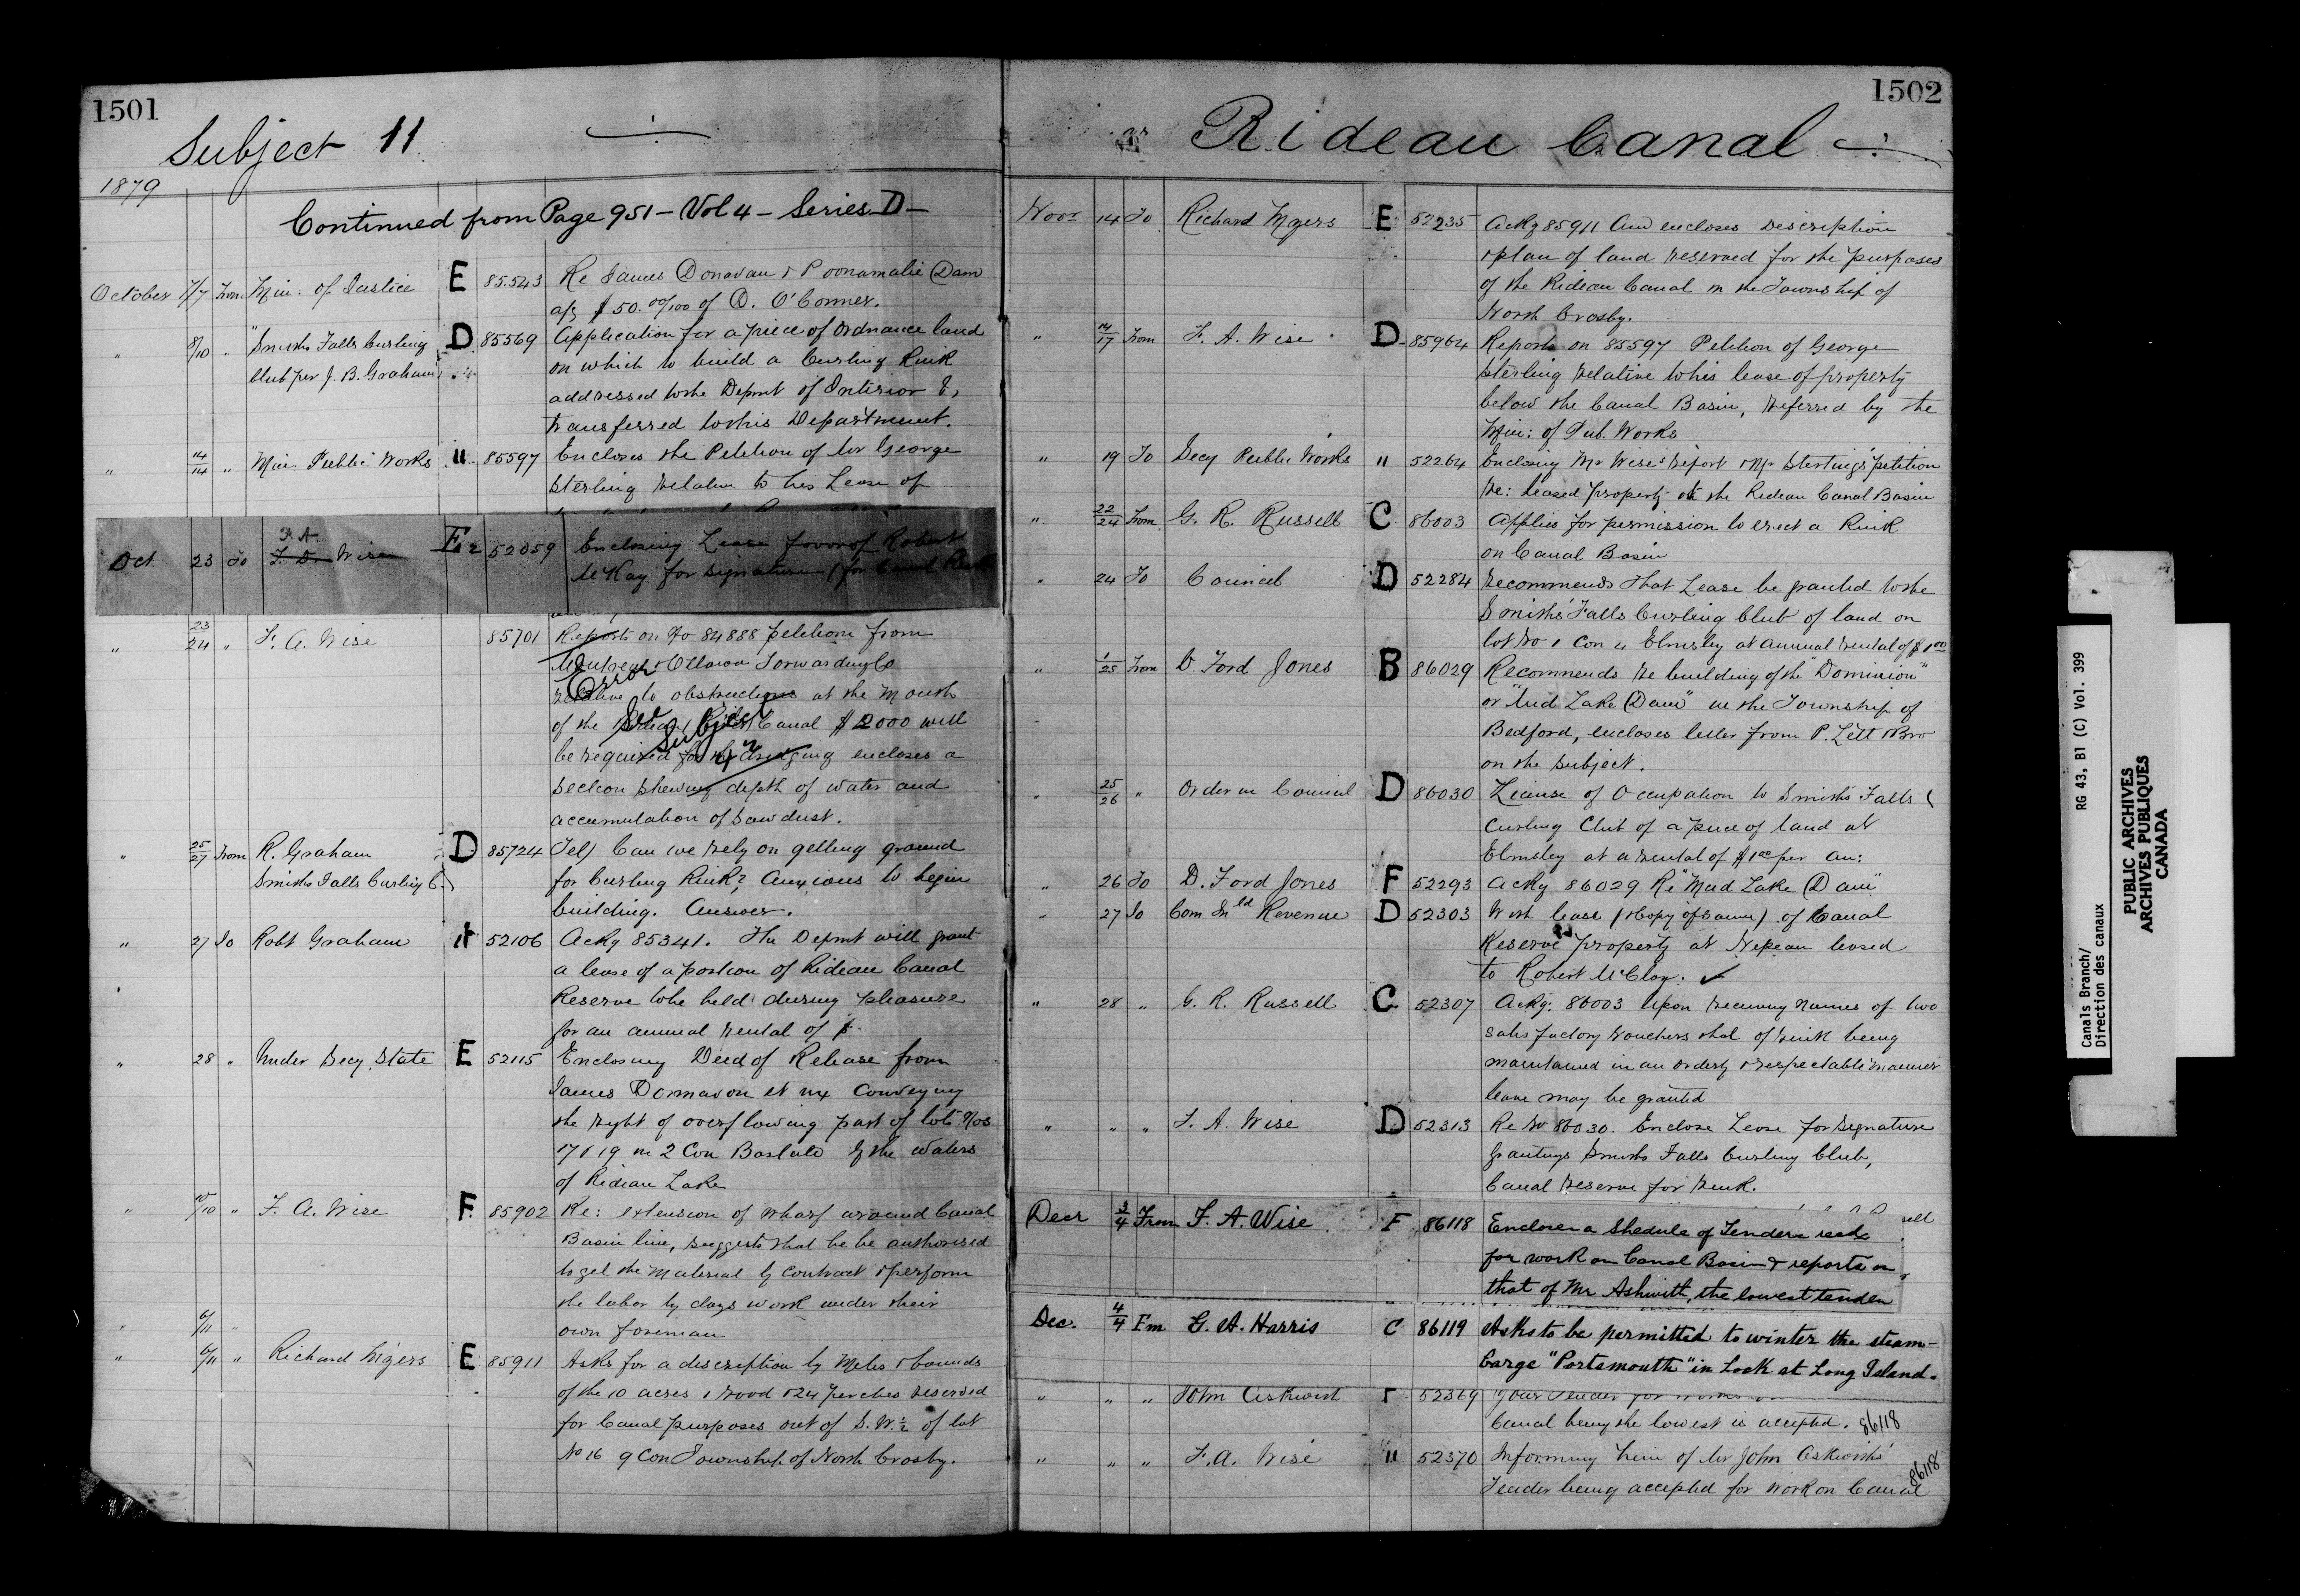 1501
Subject 11
1879
Continued from Page 951 - Vol 4 - Series D -
October 7/7 From Min: of Justice E 85543 Re James Donavan & Poonamalie Dam
a/c $50.00/100 of D. O'Connor.
" 8/10 " Smiths Falls Curling D 85569 Application for a piece of Ordnance land
Club per J. B. Graham on which to build a Curling Rink
addressed to the Depmt of Interior &
transferred to this Department.
" 14/14 " Min Public Works " 85597 Encloses the Petition of Mr George
Sterling relative to his Lease of
Oct 23 To F. A. F. D. Wise E 52059 Enclosing Lease favor of Robert
McKay for signature (for Canal
" 23/24 " F. A. Wise 85701 Reports on No 84888 petition from
Montreal & Ottawa Forwarding Co
relative to obstructions at the Mouth
of the Canal $2000 will
be required for dredging encloses a
section shewing depth of water and
accumulation of Sawdust.
Error See Subject 4
" 25/27 From R. Graham D 85724 Tel) Can we rely on getting ground
Smiths Falls Curling C. for Curling Rink? Anxious to begin
building. Answer.
" 27 To Robt Graham " 52106 Ackg 85341. The Depmt will grant
a lease of a portion of Rideau Canal
Reserve to be held during pleasure
for an annual rental of $
" 28 " Under Secy. State E 52115 Enclosing Deed of Release from
James Donnavon et ux Conveying
the right of overflowing part of lots Nos
17 & 19 in 2 Con Bastard by the waters
of Rideau Lake
" /10 " F. A. Wise F. 85902 Re: extension of wharf around Canal
Basin line, suggests that he be authorised
to get the material by Contract & perform
the labor by days work under their
own foreman
" 6/11 "
" 6/11 " Richard Myers E 85911 Asks for a description by Metes & bounds
of the 10 acres 1 rood & 24 perches reserved
for Canal purposes out of S.W. ½ of lot
No 16 9 Con Township of North Crosby.
1502
Rideau Canal
Novr 14 To Richard Myers E 52235 Ackg 85911 And encloses Description
& plan of land reserved for the purposes
of the Rideau Canal in the Township of
North Crosby.
" 14/17 From F. A. Wise D 85964 Reports on 85597 Petition of George
Sterling relative to his lease of property
below the Canal Basin, referred by the
Min: of Pub. Works
" 19 To Secy Public Works " 52264 Enclosing Mr Wise's report & Mr Sterling's petition
Re: leased property at the Rideau Canal Basin
" 22/24 From G. R. Russell C 86003 Applies for permission to erect a Rink
on Canal Basin
" 24 To Council D 52284 Recommends that Lease be granted to the
Smiths' Falls Curling Club of land on
lot No 1 Con 4 Elmsley at annual rental of $1.00
" 1/25 From D. Ford Jones B 86029 Recommends re building of the "Dominion"
or "Mud Lake Dam" in the Township of
Bedford, encloses letter from P. Lett & Bro
on the subject.
" 25/26 " Order in Council D 86030 License of Occupation to Smiths Falls
Curling Club of a piece of land at
Elmsley at a rental of $1.00 per an:
" 26 To D. Ford Jones F 52293 Ackg 86029 Re "Mud Lake Dam"
" 27 To Com Inld Revenue D 52303 With lease (& copy of same) of Canal
Reserve property at Nepean leased
to Robert McCloy. ✓
" 28 " G. R. Russell C 52307 Ackg: 86003 Upon receiving names of two
satisfactory vouchers that of rink being
maintained in an orderly & respectable manner
leave may be granted
" " " F. A. Wise D 52313 Re No 86030. Enclose Lease for signature
Granting Smiths Falls Curling Club,
Canal Reserve for Rink.
Decr 3/4 From F. A. Wise F 86118 Encloses a Shedule of Tenders recd
for work on Canal Basin & reports on
that of Mr Ashwith, the lowest tender
Dec. 4/4 Fm G. A. Harris C 86119 Asks to be permitted to winter the steam-
barge "Portsmouth" in Lock at Long Island.
" " " John Askwith F 52369 Your Tender for works on
Canal being the lowest is accepted. 86118
" " " F. A. Wise " 52370 Informing him of Mr John Askwith's
Tender being accepted for work on Canal 86118
Canals Branch/ RG 43, B1 (C) Vol. 399
Direction des canaux
PUBLIC ARCHIVES
ARCHIVES PUBLIQUES
CANADA